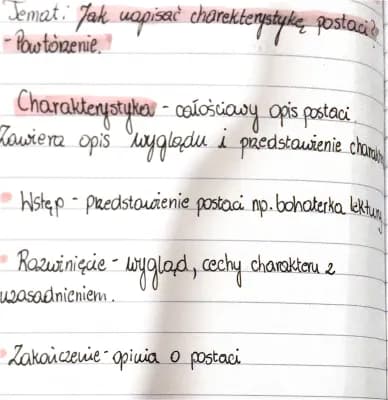 Temat: Jak napisać charakterystykę postaci?
- Powtórzenie.
Charakterystyka - całościowy opis postaci.
Zawiera opis wyglądu i przedstawienie charakt
• Wstęp - przedstawienie postaci np. bohaterka lektury
• Rozwinięcie - wygląd, cechy charakteru z
uzasadnieniem.
• Zakończenie - opinia o postaci